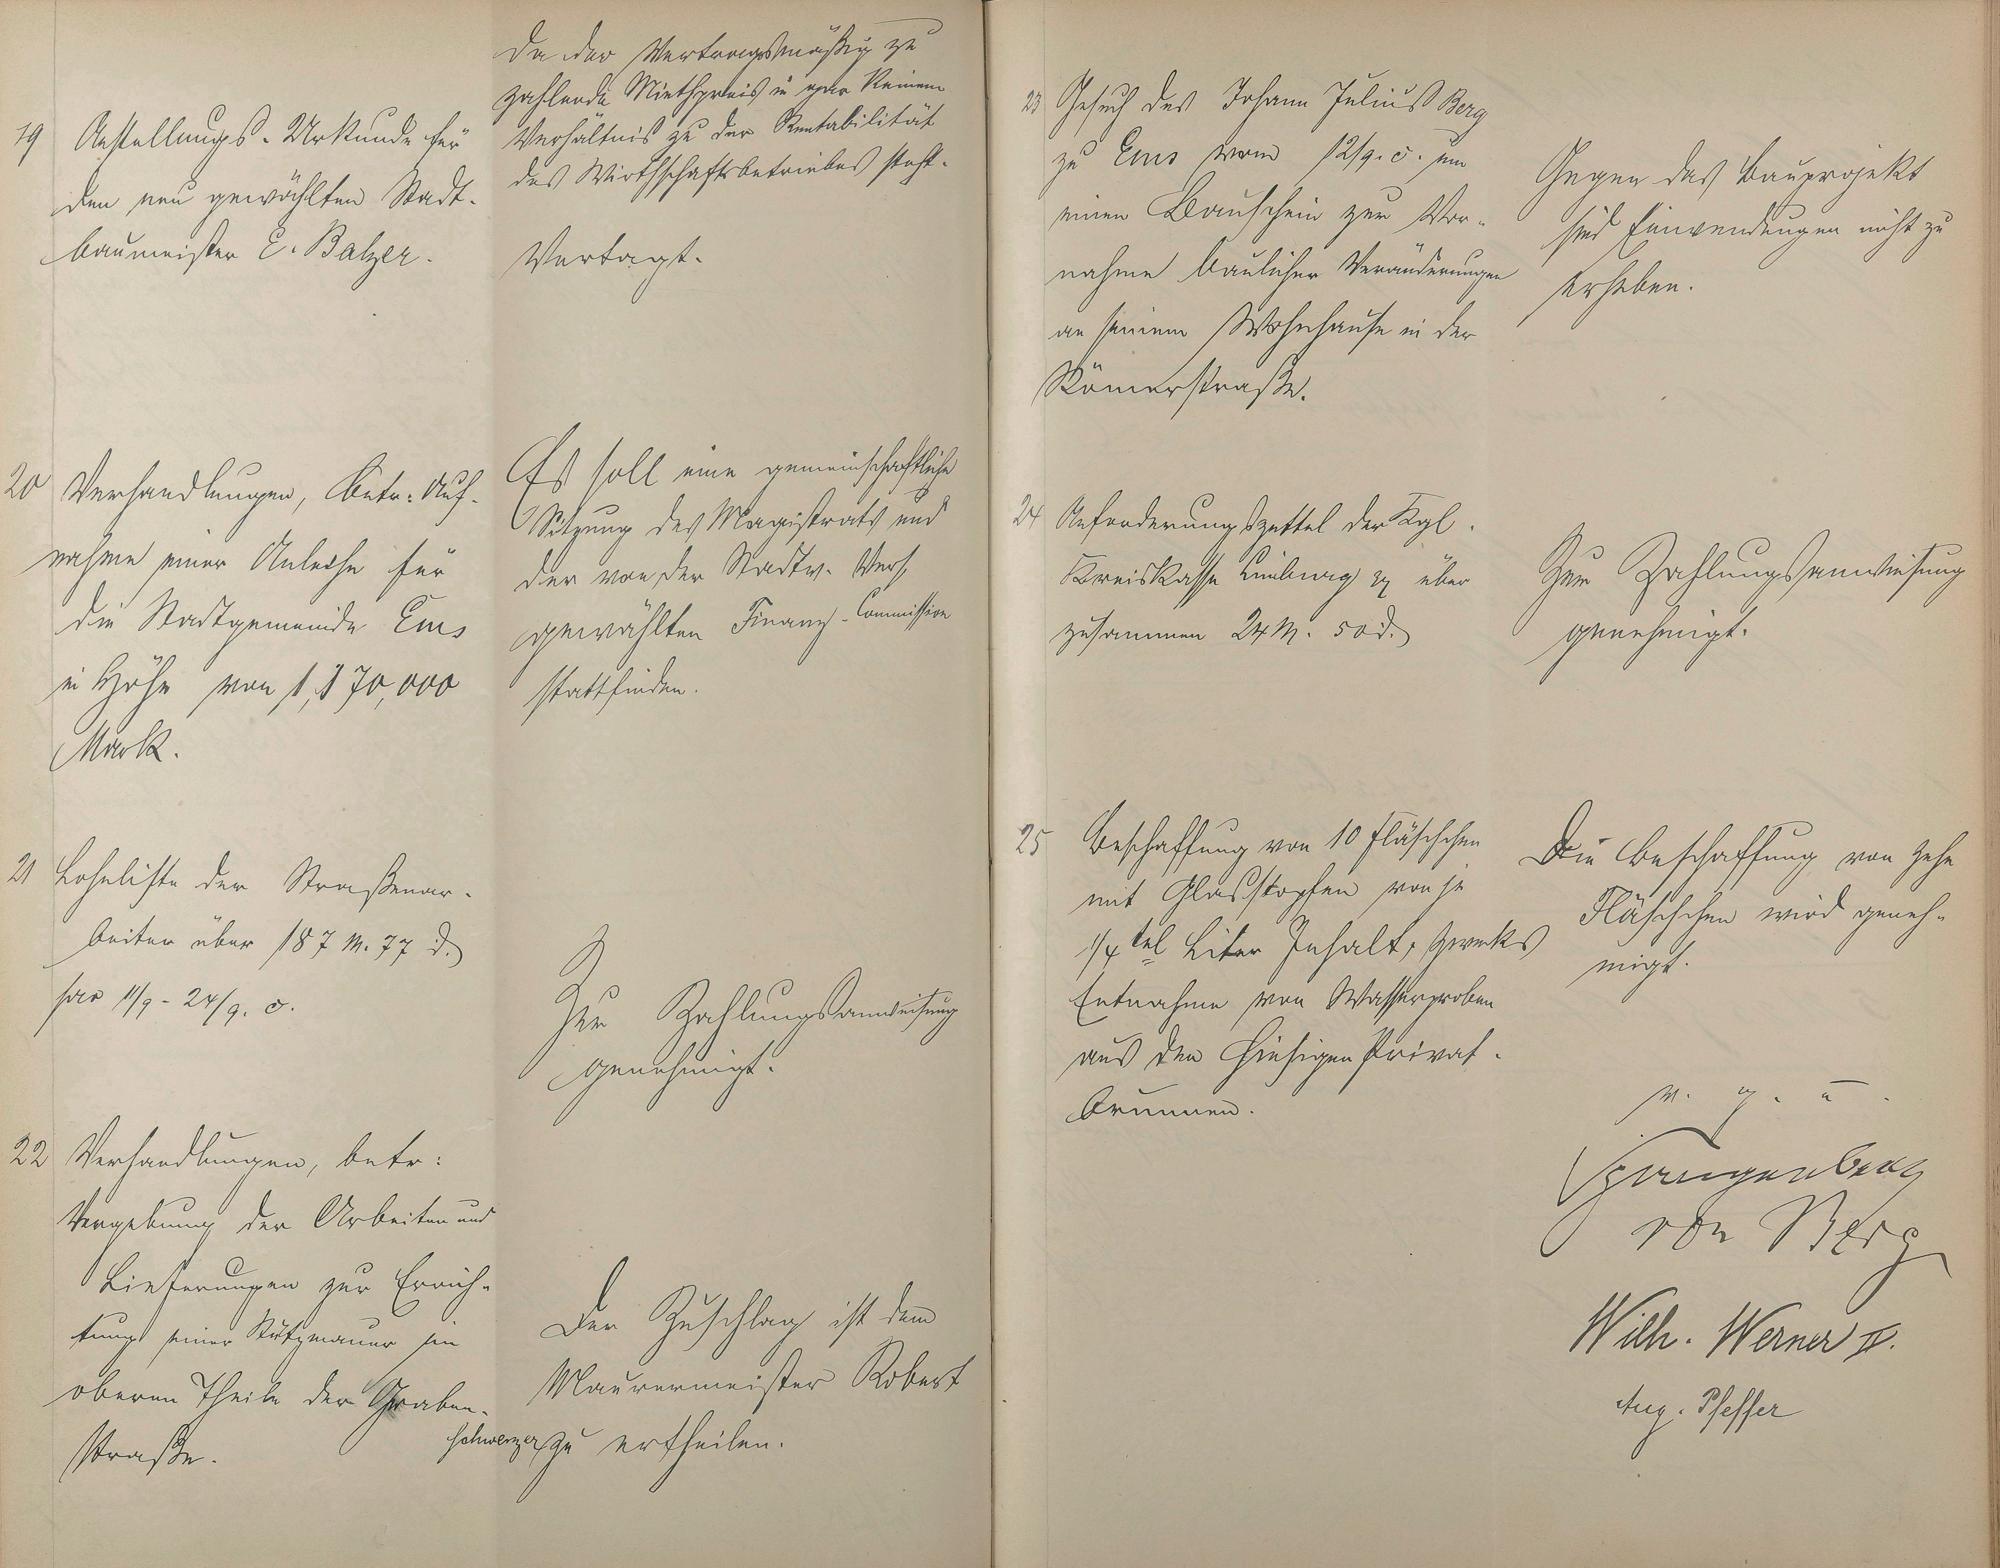 da der vertragsmäßig zu
zahlende Miethpreis in gar keinem
Verhältnis zu der Rentabilität
des Wirthschaftsbetriebes steht.
19 Anstellungs-Urkunde für
den neu gewählten Stadt-
baumeister E. Balzer.
Vertagt.
20 Verhandlungen, betr: Auf-
nahme einer Anleihe für
die Stadtgemeinde Ems
in Höhe von 1,170,000
Mark.
Es soll eine gemeinschaftliche
Sitzung des Magistrats und
der von der Stadtv. Vers.
gewählten Finanz-Commission
stattfinden.
21 Lohnliste der Straßenar-
beiter über 187 M. 77 d.
pro 11/9 - 24/9. c.
Zur Zahlungsanweisung
genehmigt.
22 Verhandlungen, betr:
Vergebung der Arbeiten und
Lieferungen zur Errich-
tung einer Stützmauer im
oberen Theile der Graben-
straße.
Der Zuschlag ist dem
Maurermeister Robert
Schwenzer zu ertheilen.
23 Gesuch des Johann Julius Berg
zu Ems vom 12/9. c. um
einen Bauschein zur Vor-
nahme baulicher Veränderungen
an seinem Wohnhause in der
Römerstraße.
Gegen das Bauprojekt
sind Einwendungen nicht zu
erheben.
24 Anforderungszettel der Kgl.
Kreiskasse Limburg über
zusammen 24 M. 50 d.
Zur Zahlungsanweisung
genehmigt.
25 Beschaffung von 10 Fläschchen
mit Glasstopfen von je
1/4 tel Liter Inhalt, zwecks
Entnahme von Wasserproben
aus den hiesigen Privat-
brunnen.
Die Beschaffung von zehn
Fläschchen wird geneh-
migt.
v. g. u.
Spangenberg
von Berg
Wilh. Werner II.
Aug. Pfeffer